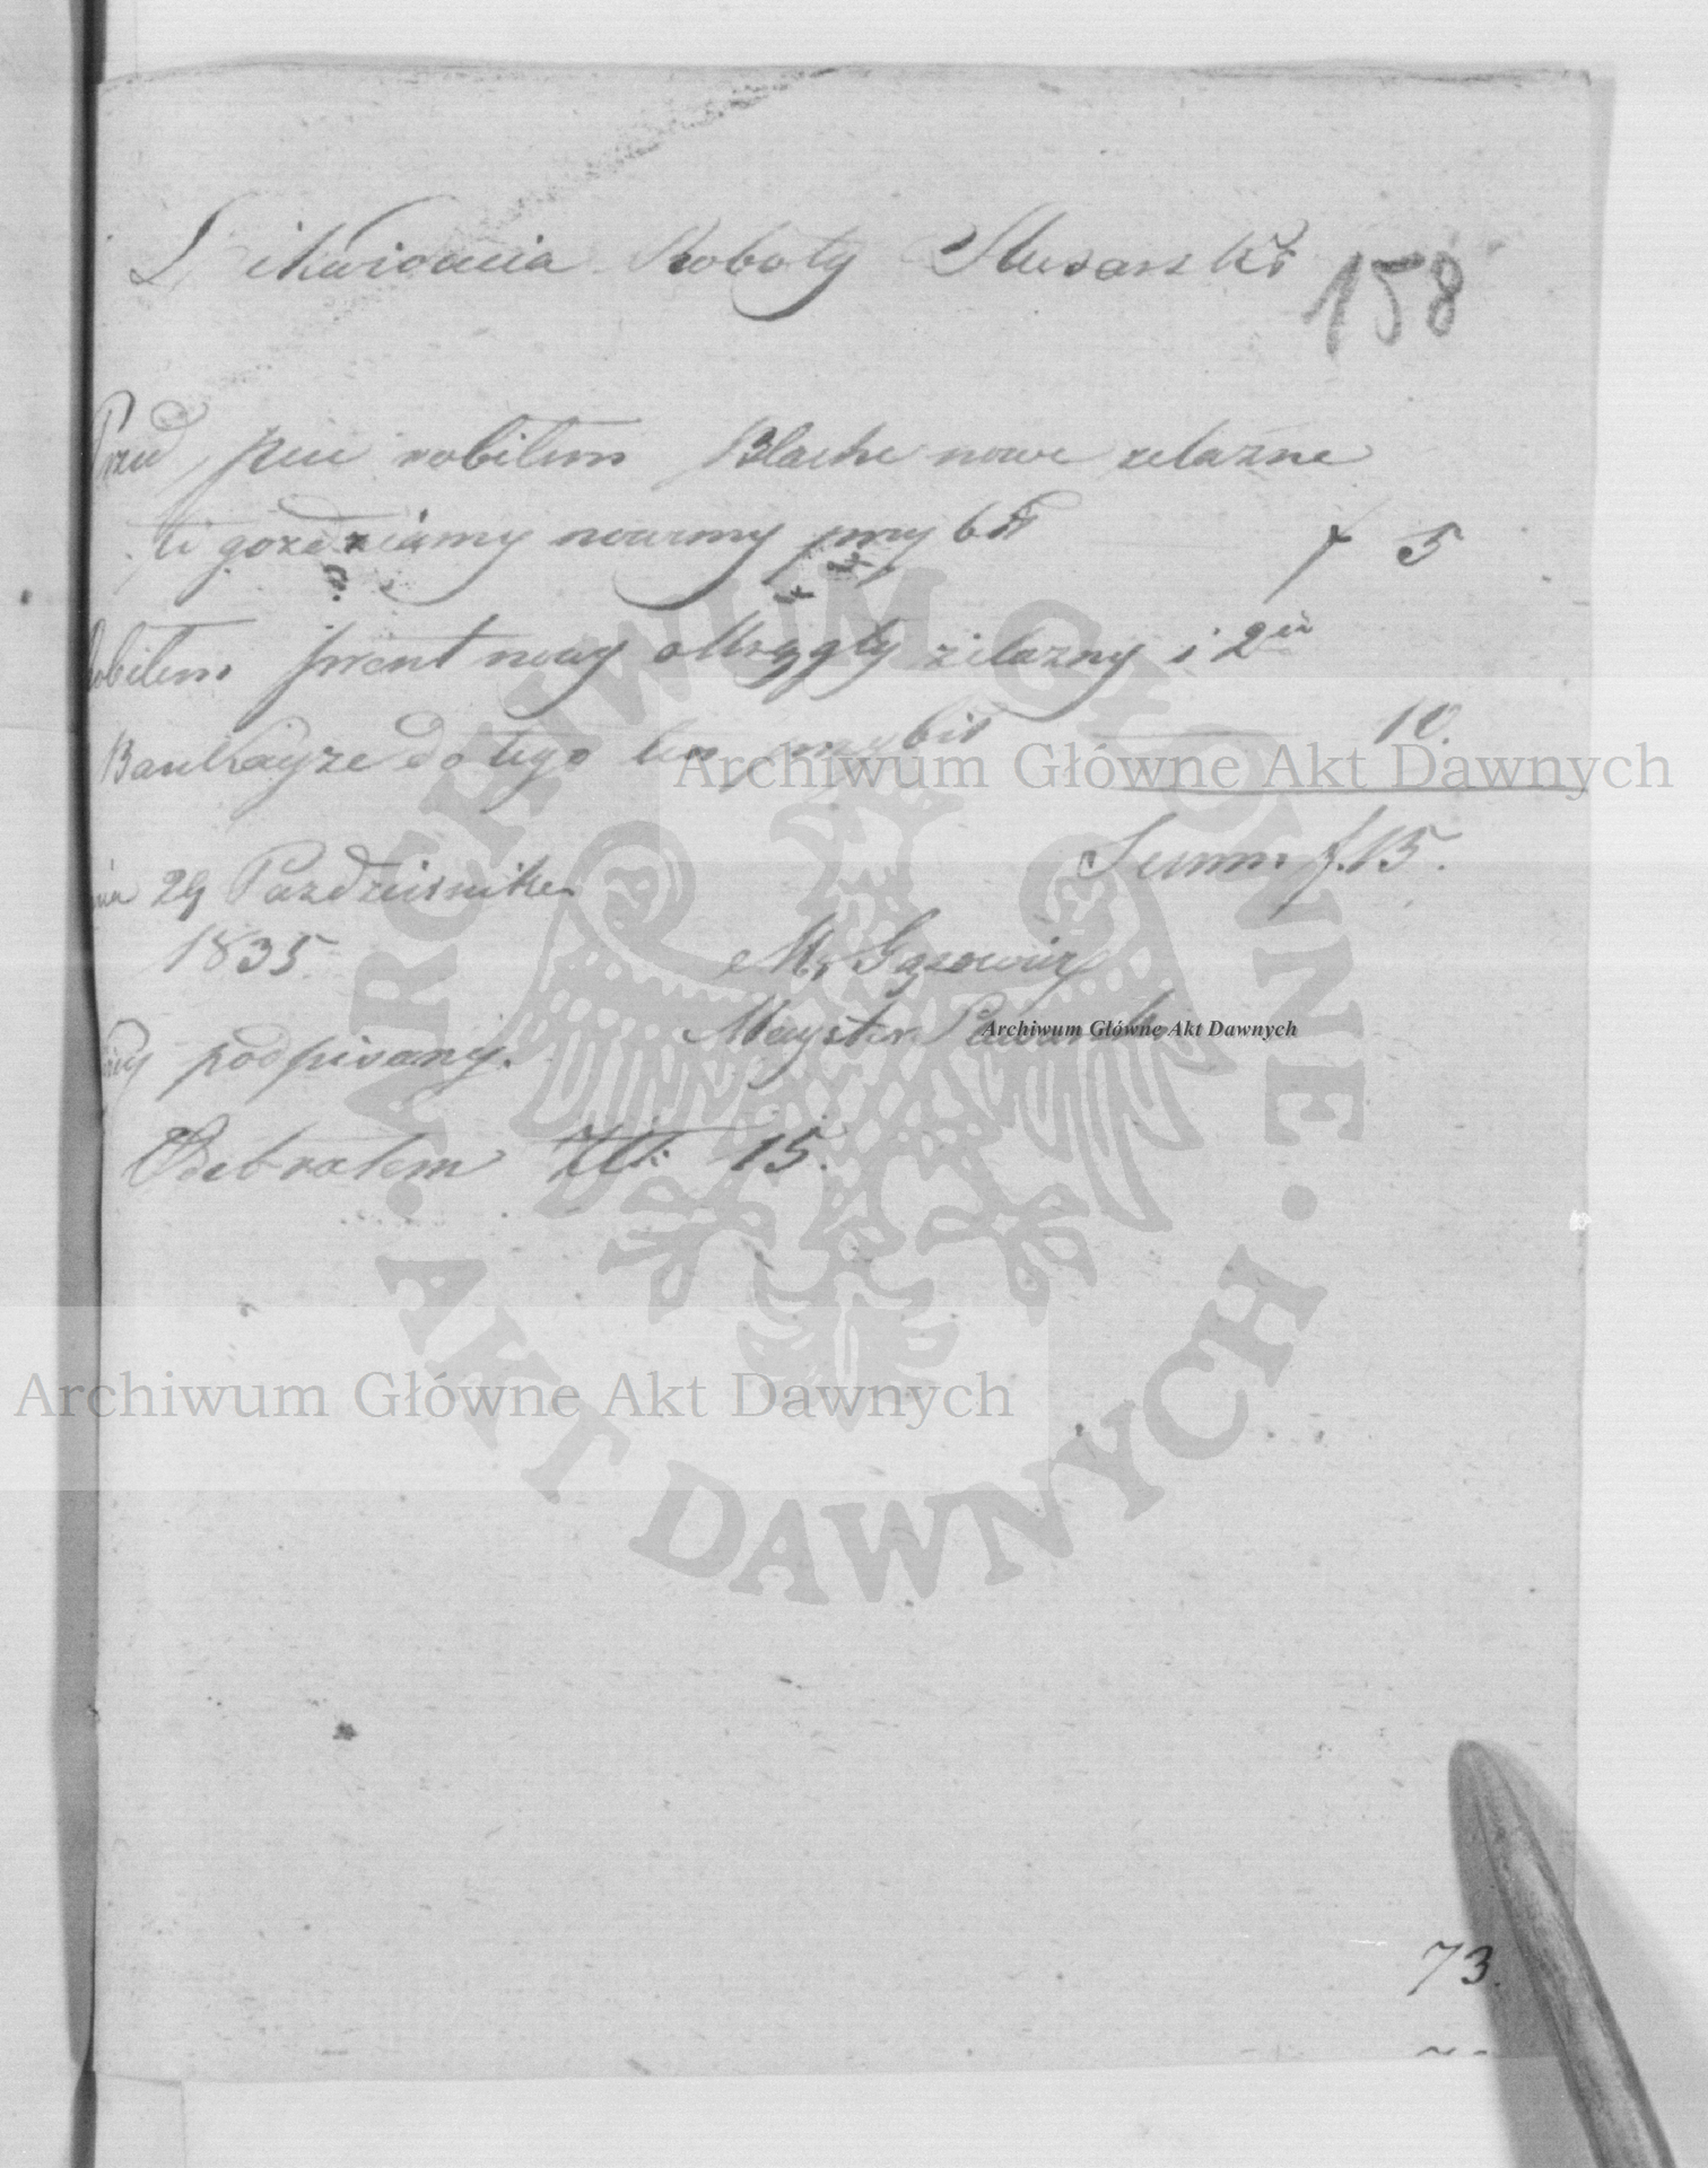 Likwidacia Roboty Slusarski
158
Przed piec robilem Blache nowe zelazne
ti gozdziamy nowemy przybił f 5
Robilem prent nowy okrzągly zilazny i 2
Bankayze do tego ten przybił 10.
Summ f. 15.
29 Pazdziernika
1835
M. Gąsowicz
Mayster
podpisany.
Odebrałem Złł: 15.
73.
ARCHIWUM GŁÓWNE
AKT DAWNYCH
Archiwum Główne Akt Dawnych
Archiwum Główne Akt Dawnych
Archiwum Główne Akt Dawnych